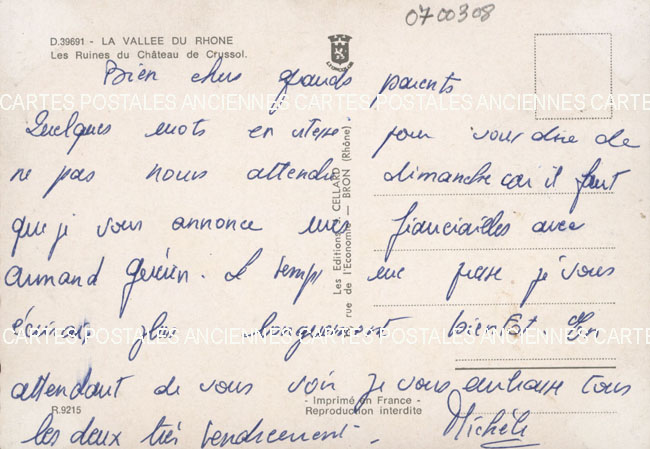 0700308
D.39691 - LA VALLEE DU RHONE
Les Ruines du Château de Crussol.
Bien chers grands parents
CARTES POSTALES ANCIENNES CARTES POSTALES ANCIENNES CARTE
Quelques mots en vitesse pour vous dire de
ne pas nous attendre dimanche car il faut
que je vous annonce mes fianciailles avec
Armand Guérin. Le temps me presse je vous
écrirai plus longuement bientôt En
CARTES POSTALES ANCIENNES CARTES POSTALES ANCIENNES CARTE
attendant de vous voir je vous embrasse tous
les deux très tendrement. Michèle
R.9215
- Imprimé en France -
Reproduction interdite
Les Editions CELLARD
rue de l'Economie — BRON (Rhône)